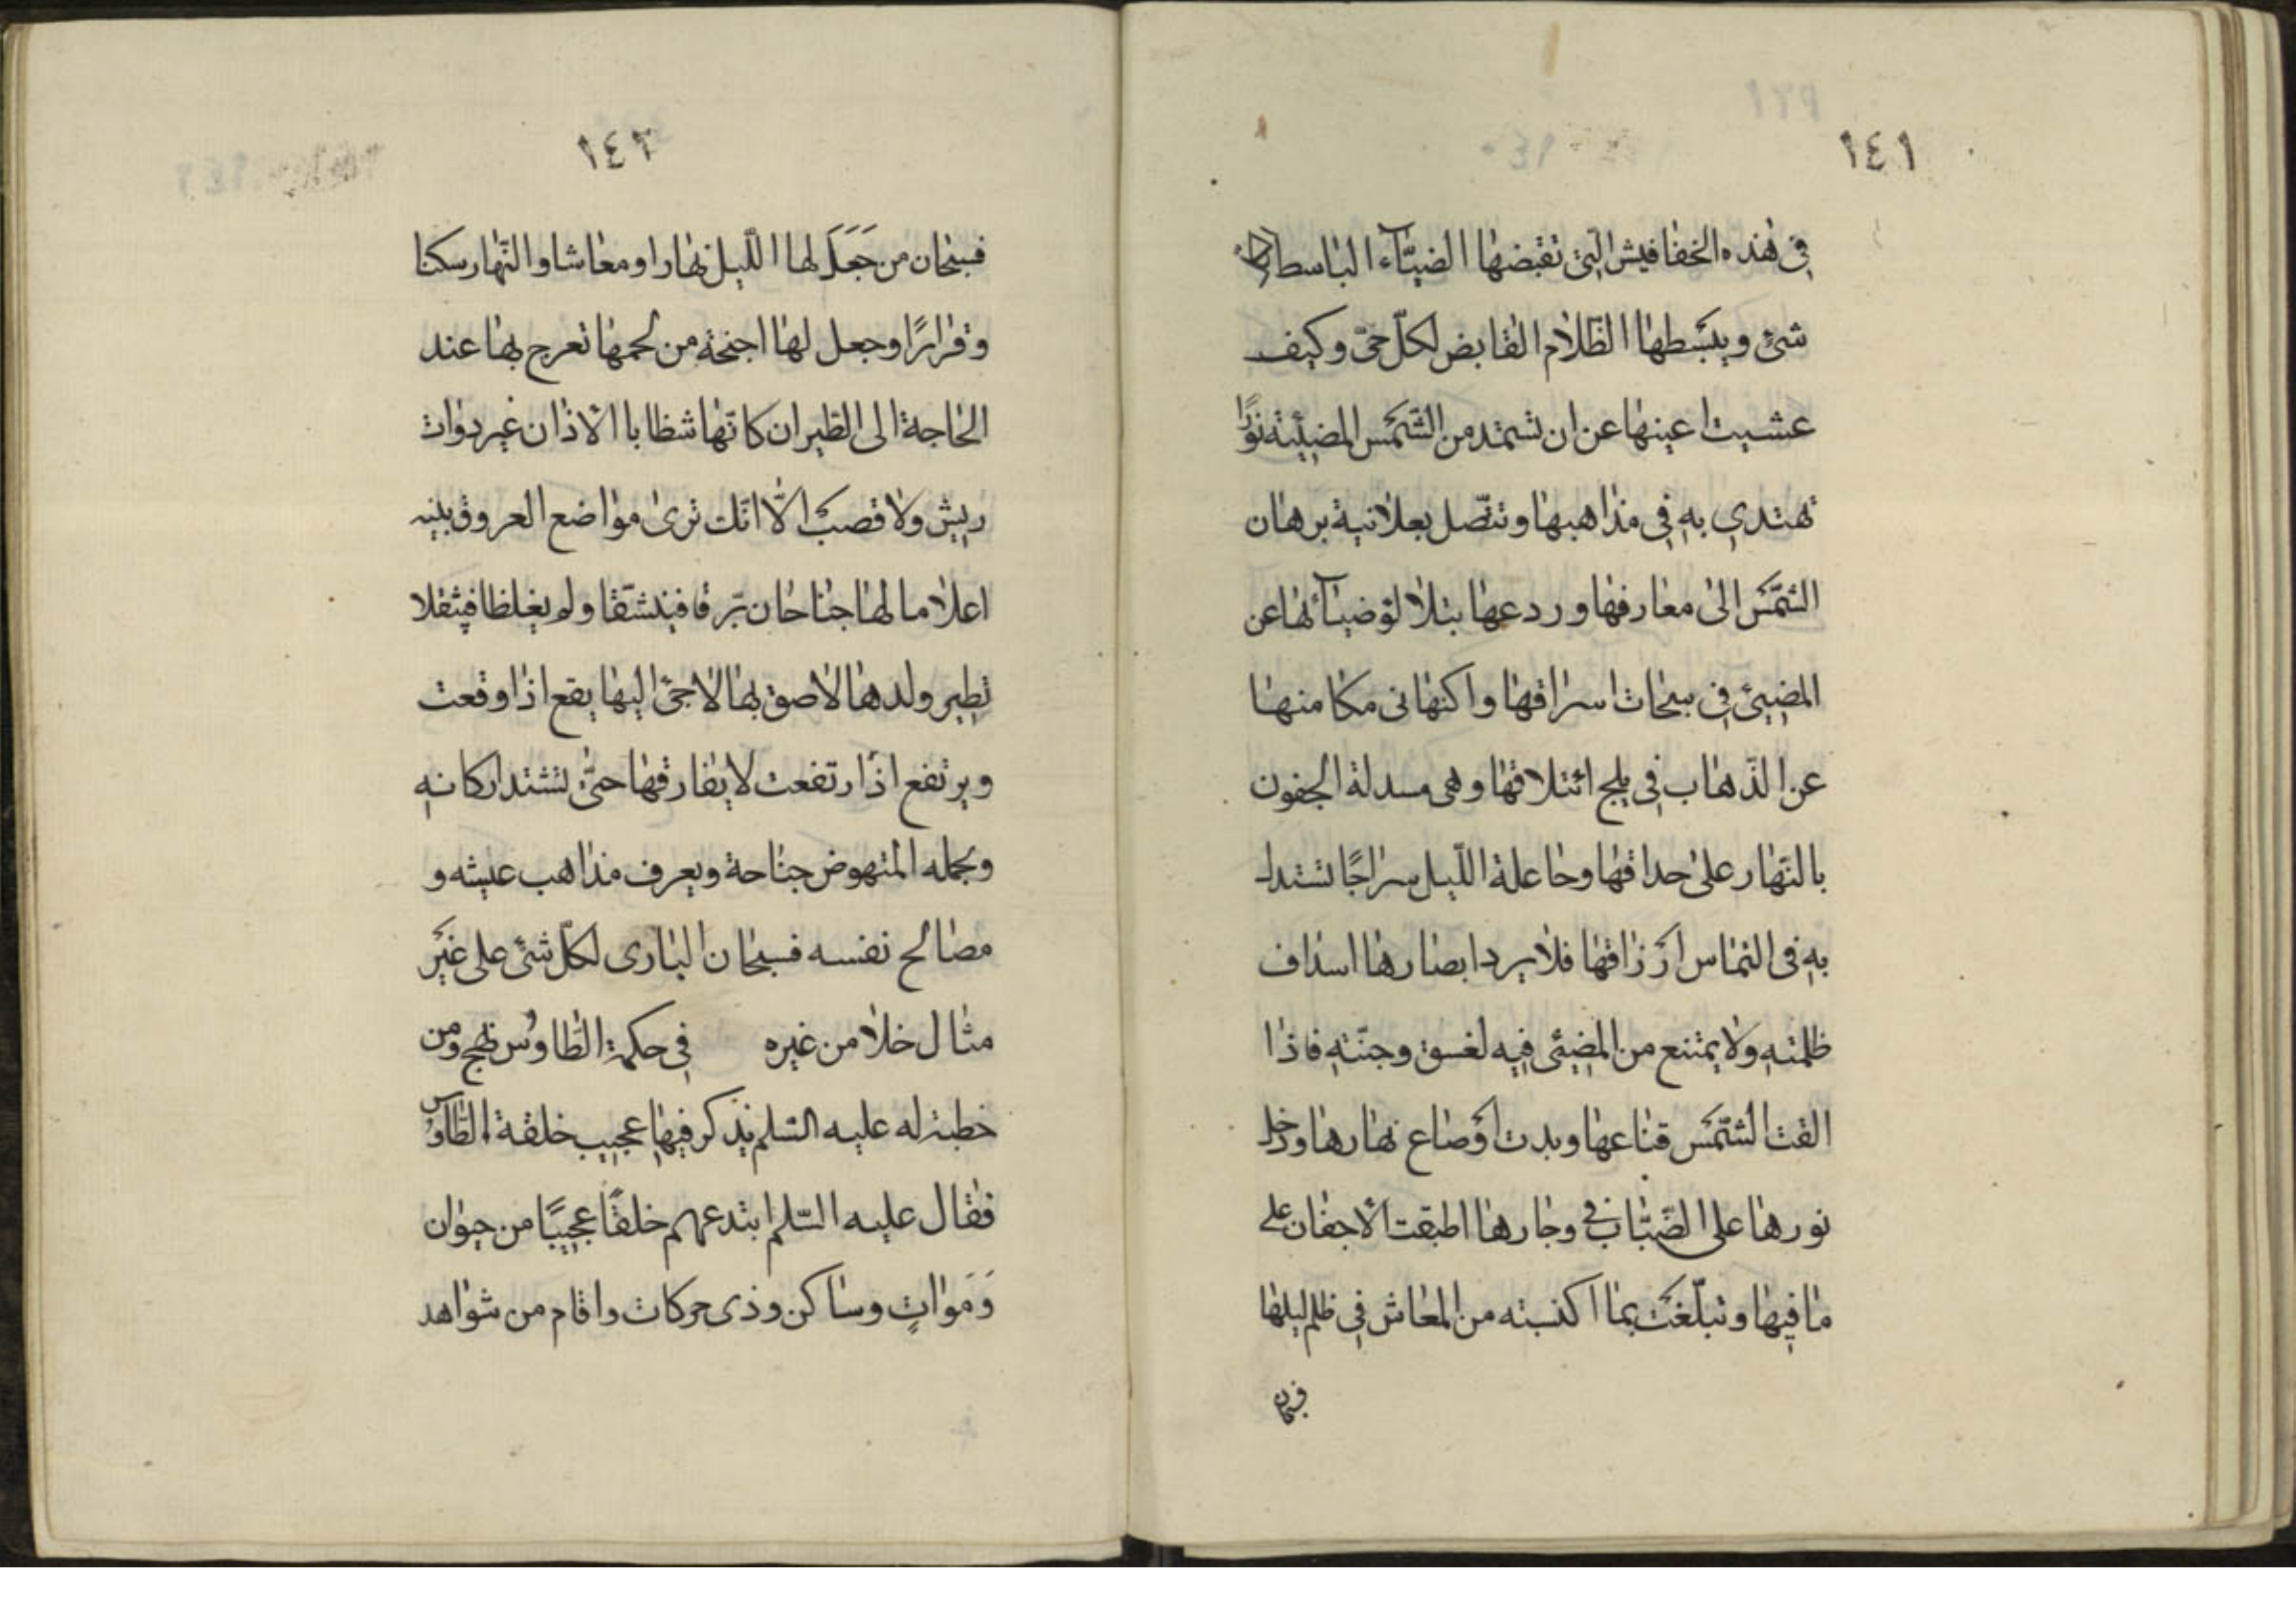 ١٤١
في هذه الخفافيش التي تقبضها الضياء الباسط لكل
شئ ويبسطها الظلام القابض لكلّ حيّ وكيف
عشيت اعينها عن ان تستمد من الشّمس المضيئة نورًا
تهتدي به في مذاهبها وتتّصل بعلانية برهان
الشّمس الى معارفها وردعها بتلالؤ ضيائها عن
المضيئ في سبحات اسراقها واكنها في مكامنها
عن الذّهاب في بلج ائتلاقها وهي مسدلة الجفون
بالنّهار على حداقها وجاعلة اللّيل سراجًا تستدل
به في التماس ارزاقها فلا يرد ابصارها اسداف
ظلمته ولا يمتنع من المضيئ فيه لغسق وجنّته فاذا
القت الشّمس قناعها وبدت اوضاع نهارها ودخل
نورها على الضّباب في وجارها اطبقت الاجفان على
ما فيها وتبلّغت بما اكتسبته من المعاش في ظلم ليلها
فسبحان
١٤٢
فسبحان من جَعَلَ لها اللّيل نهارا ومعاشا والنّهار سكنا
وقرارًا وجعل لها اجنحة من لحمها تعرج بها عند
الحاجة الى الطيران كانّها شظايا الاذان غير ذوات
ريش ولا قصب الّا انّك ترى مواضع العروق بينه
اعلاما لها جناحان يرّقا فينشقّا ولم يغلظا فيثقلا
تطير ولدها لاصق بها لاجئ اليها يقع اذا وقعت
ويرتفع اذا ارتفعت لا يفارقها حتّى تشتد اركانه
ويحمله المنهوض جناحة ويعرف مذاهب عيشه و
مصالح نفسه فسبحان الباري لكلّ شئ على غير
مثال خلا من غيره في حكمة الطّاوس نهج ومن
خطبة له عليه السّلم يذكر فيها عجيب خلقة الطّاوس
فقال عليه السّلم ابتدعهم خلقًا عجيبًا من حيوان
وَمَواتٍ وساكن وذي حركات واقام من شواهد